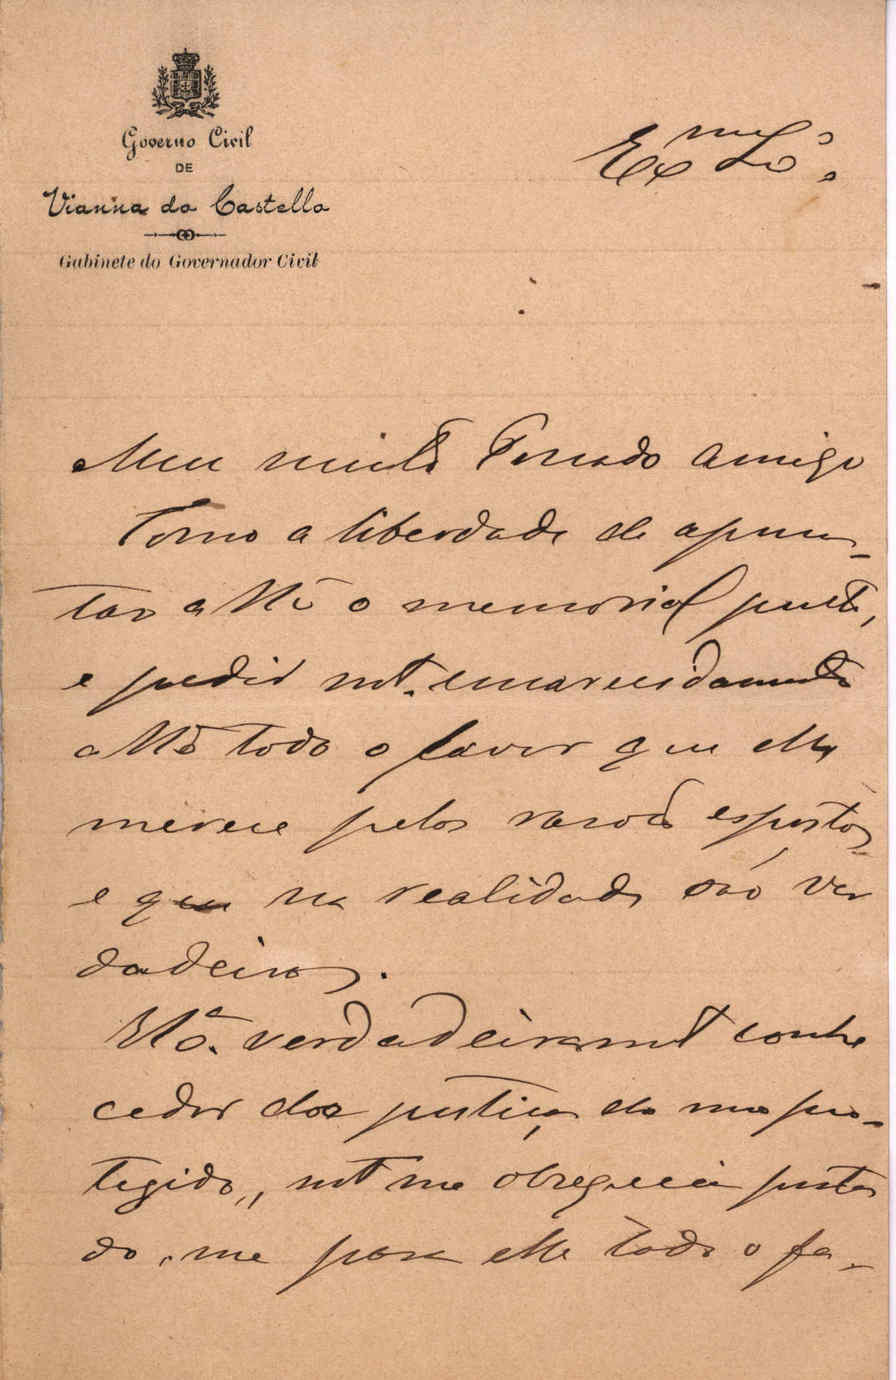 Governo Civil
DE
Vianna do Castello
Gabinete do Governador Civil
Exmo Sr.
Meu muito Presado Amigo
Tomo a liberdade de apresen-
tar a VExa o memorial junto,
e pedir mto. encarecidamente
a VExa todo o favor que elle
merece pelas rasões expostas
e que na realidade são ver
dadeiras.
VExa. verdadeiramte conhe
cedor da justiça do meu pro-
tegido, mto me obsequeia prestan
do-me para elle todo o fa-